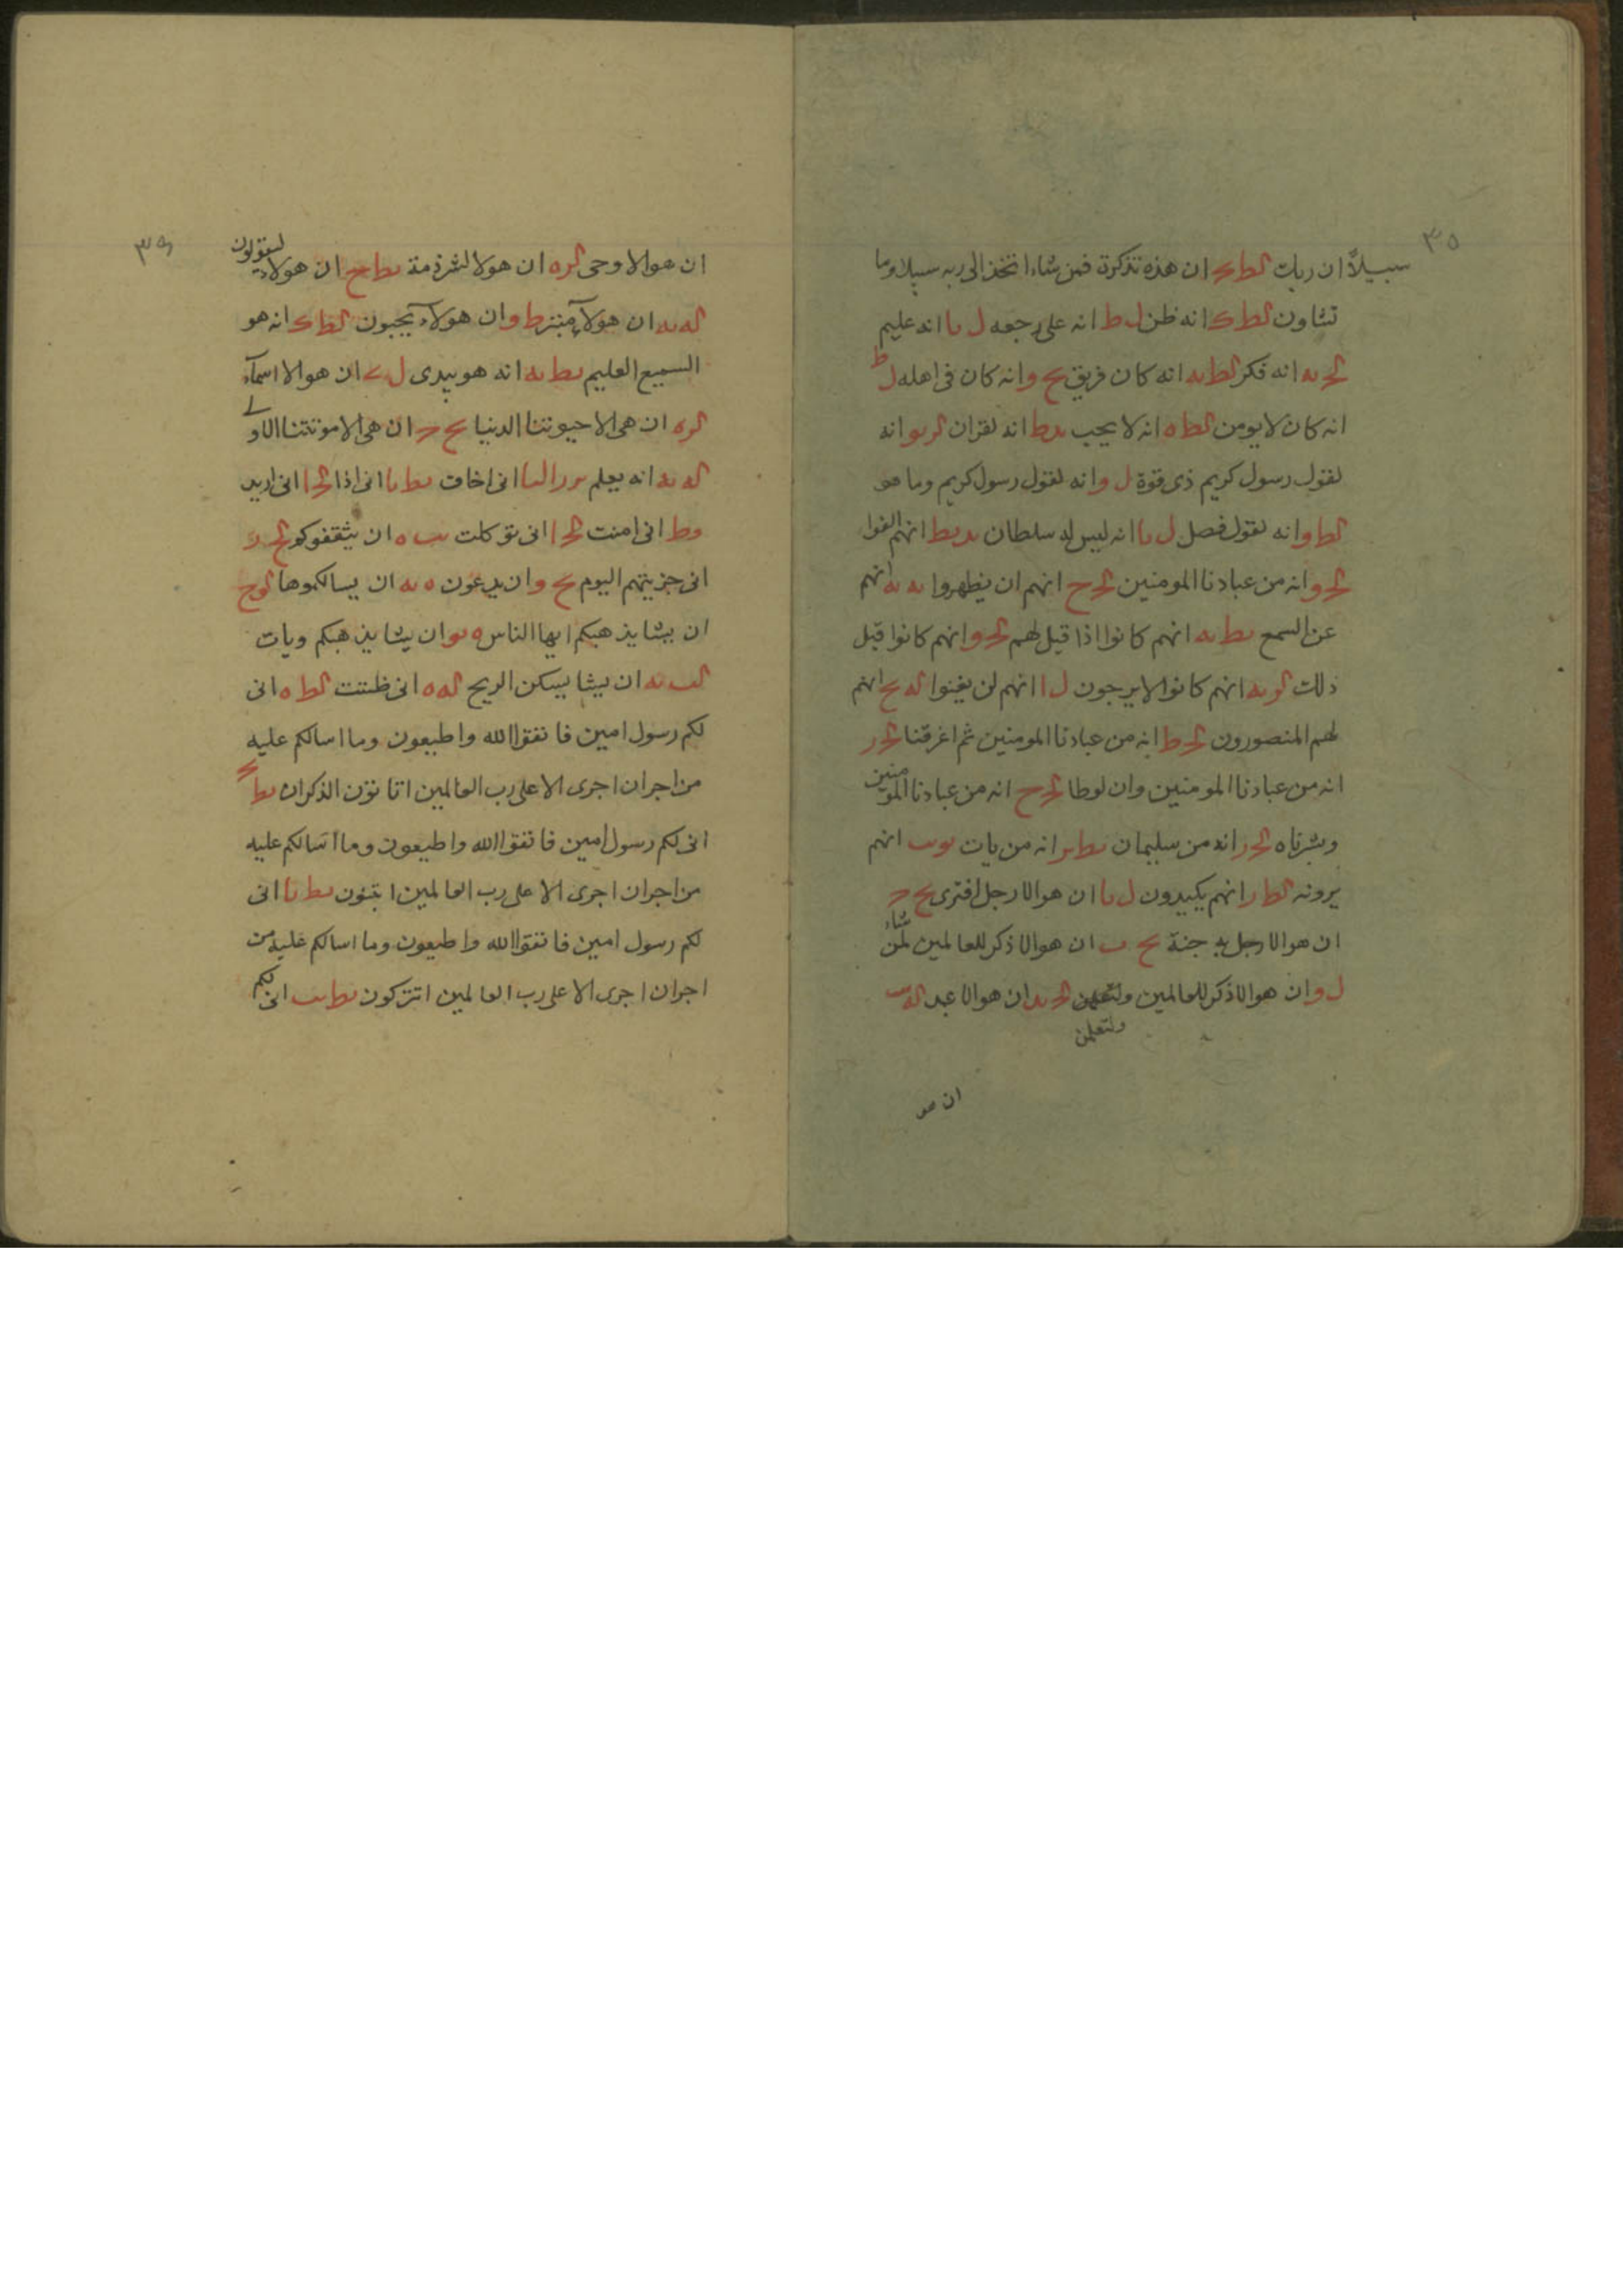 ٣٥
سبيلاً ان ربك الط ان هذه تذكرة فمن شاء اتخذ الى ربه سبيلا وما
تشاون الط انه ظن ل ط انه على رجعه ل ىا انه عليم
انه فكر الط ىه انه كان فريق ح و انه كان فى اهله ل ط
انه كان لا يومن الط ه انه لا يحب ىد ط انه لقران انه
لقول رسول كريم ذى قوة ل و انه لقول رسول كريم وما هو
الط و انه لقول فصل ل ىا انه ليس له سلطان انهم الفوا
و انه من عبادنا المومنين انهم ان يظهروا ىه ىه انهم
عن السمع ىط ىه انهم كانوا اذا قيل لهم و انهم كانوا قبل
ذلك انهم كانوا لا يرجون ل ا انهم لن يغنوا انهم
لهم المنصورون انه من عبادنا المومنين ثم اغرقنا
انه من عبادنا المومنين وان لوطا انه من عبادنا المومنين
وبشرناه انه من سليمان انه من يات انهم
يرونه انهم يكيدون ل ىا ان هو الا رجل افترى
ان هو الا رجل به جنة ان هو الا ذكر للعالمين لمن شاء
ل و ان هو الا ذكر للعالمين ولتعلمن ان هو الا عبد
ولتعلمن
ان هو
ان هو الا وحى ان هولا لشرذمة ان هولاء ليقولون
ان هولاء متبر ط و ان هولاء يحبون انه هو
السميع العليم ىط ىه انه هو يبدى ان هو الا اسماء
ان هى الا حيوتنا الدنيا ان هى الا موتتنا الاولى
انه يعلم انى اخاف ىط ىا انى اذا انى اريد
وط انى امنت انى توكلت ان يثقفوكم
انى جزيتهم اليوم وان يدعون ه ىه ان يسالكموها
ان يشا يذهبكم ايها الناس ان يشا يذهبكم ويات
ان يشا يسكن الريح انى ظننت الط ه انى
لكم رسول امين فاتقوا الله واطيعون وما اسالكم عليه
من اجر ان اجرى الا على رب العالمين اتاتون الذكران ىط
انى لكم رسول امين فاتقوا الله واطيعون وما اسالكم عليه
من اجر ان اجرى الا على رب العالمين اتبنون ىط ىا انى
لكم رسول امين فاتقوا الله واطيعون وما اسالكم عليه من
اجر ان اجرى الا على رب العالمين اتتركون انى لكم